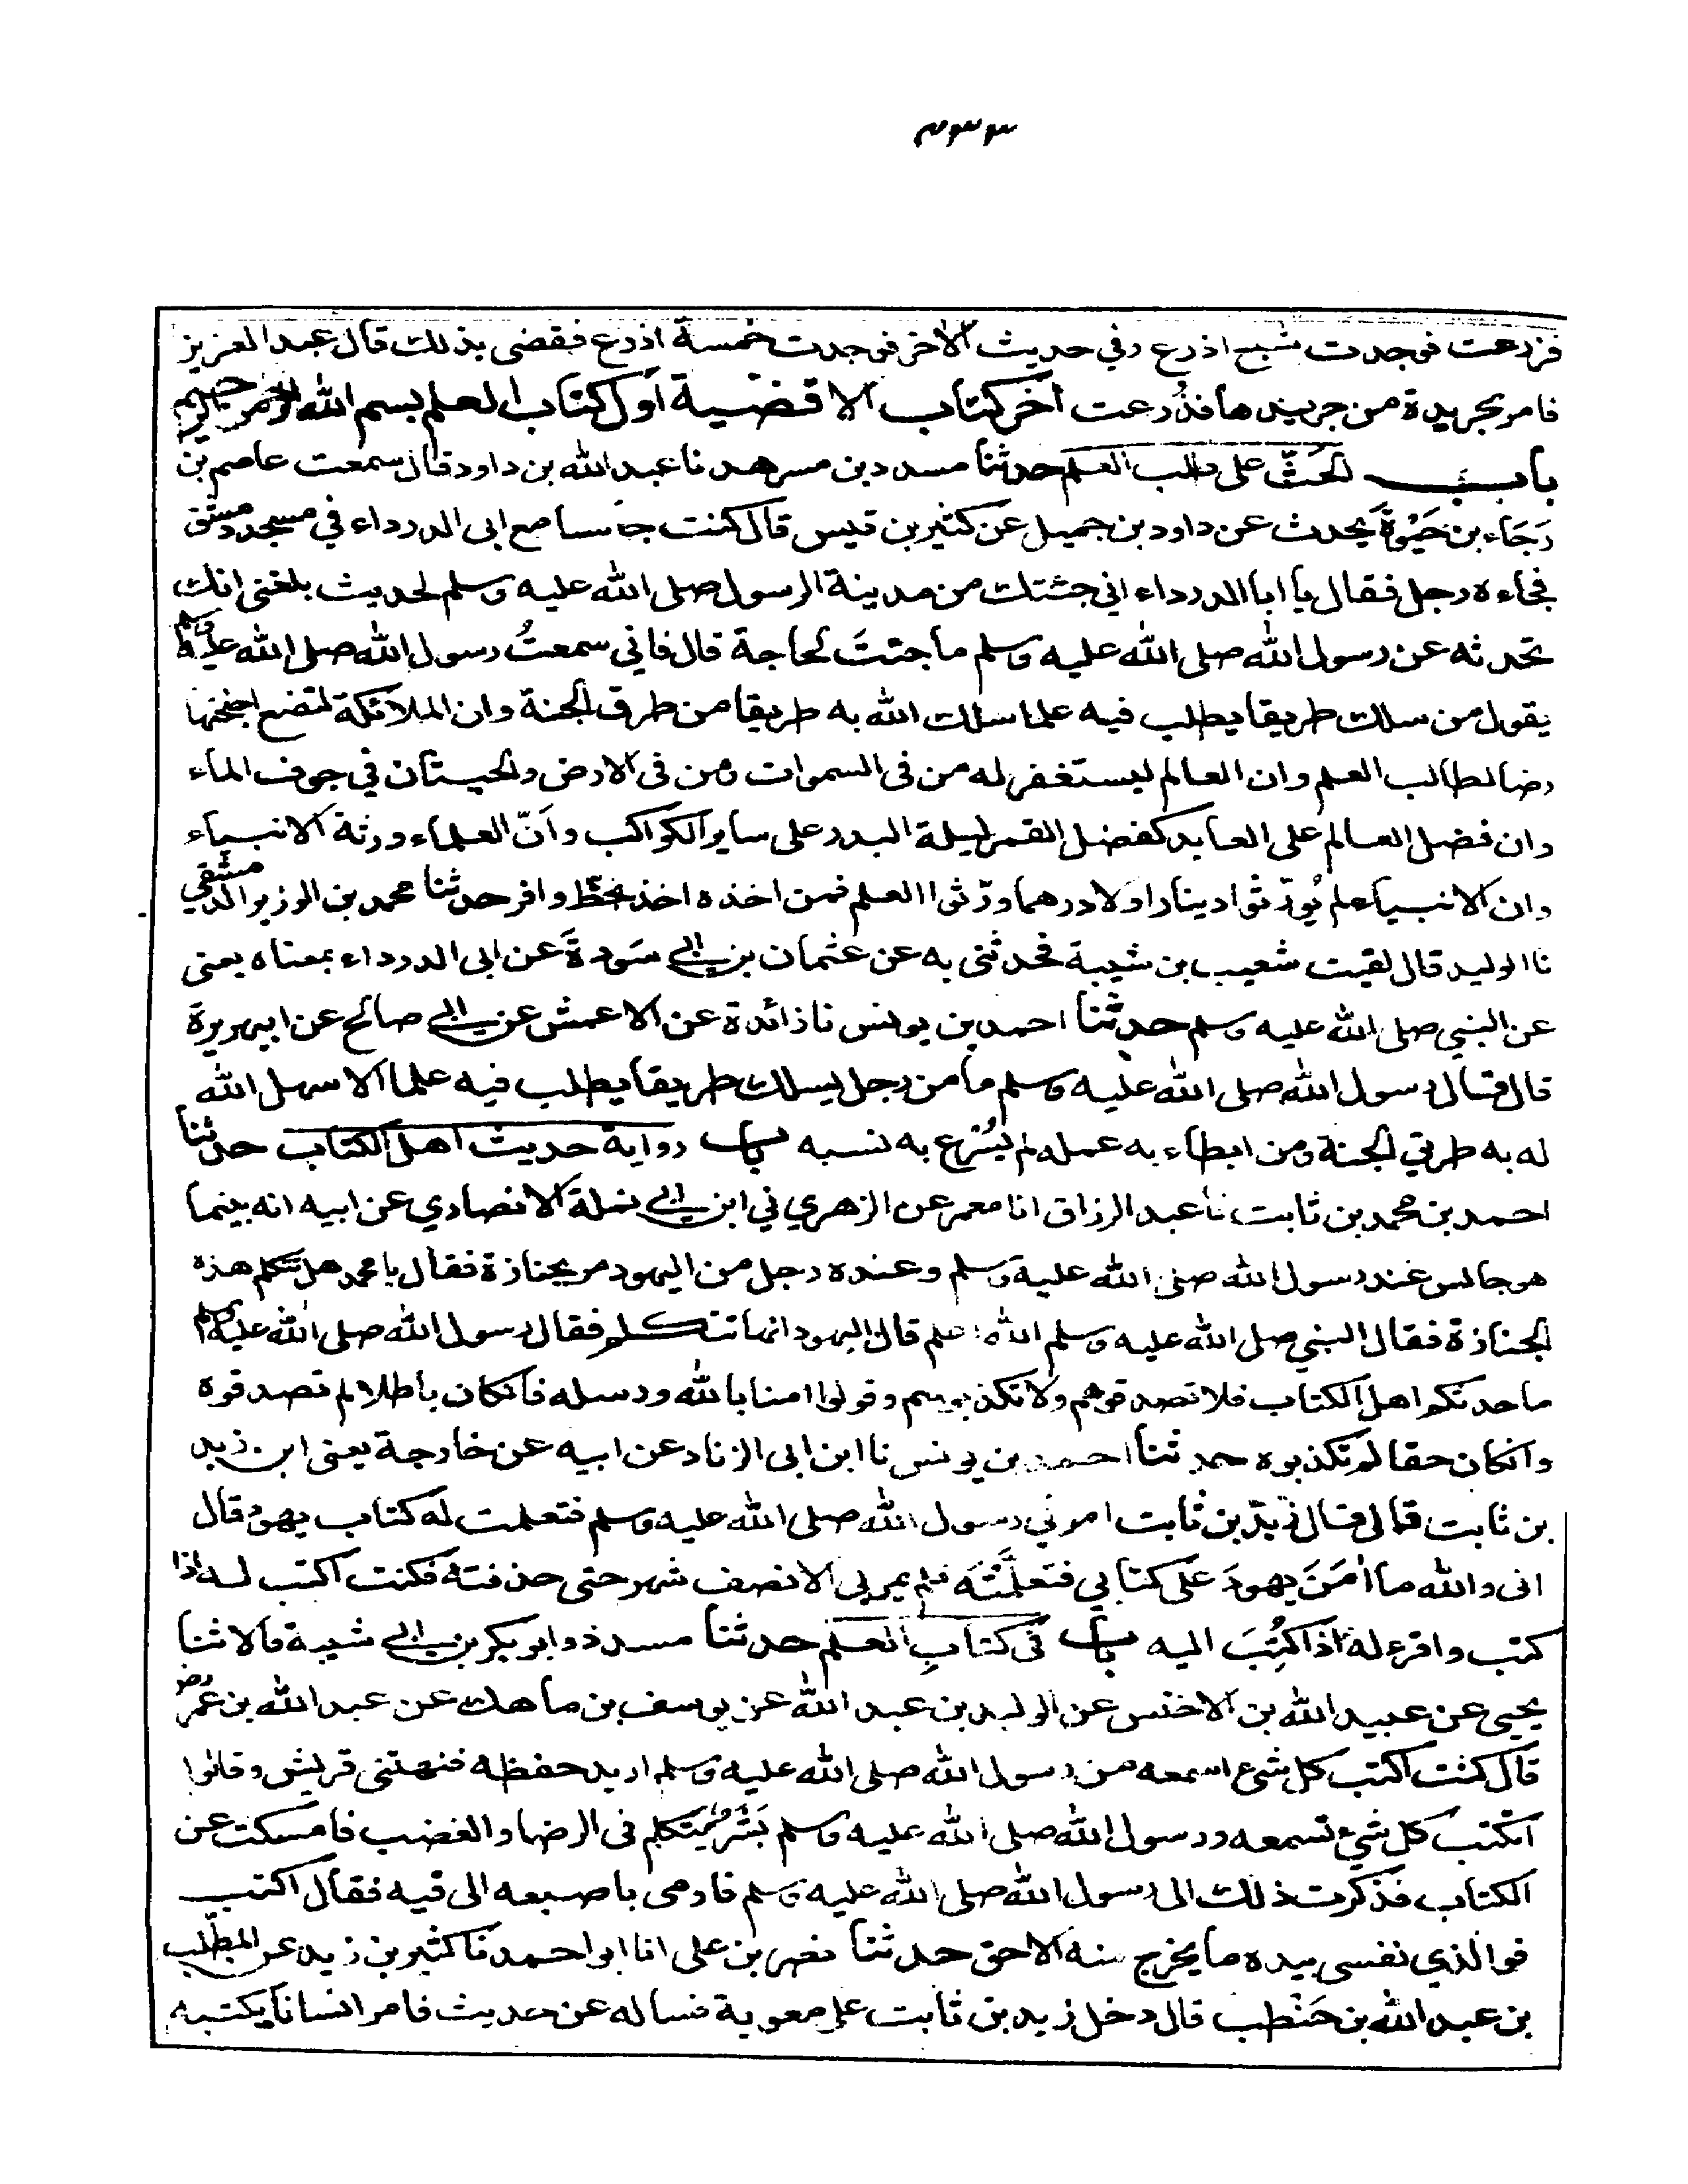 ٣٣٣
فزرعت فوجدت سبع اذرع وفي حديث الاخر فوجدت خمسة اذرع فقضى بذلك قال عبد العزيز
فامر بجريدة من جريدها فذُرعت آخر كتاب الاقضية اول كتاب العلم بسم الله الرحمن الرحيم
باب الحَثّ على طلب العلم حدثنا مسدد بن مسرهد نا عبد الله بن داود قال سمعت عاصم بن
رَجَاء بن حَيْوَةَ يحدث عن داود بن جميل عن كثير بن قيس قال كنت جالسا مع ابى الدرداء في مسجد دمشق
فجاءه رجل فقال يا ابا الدرداء اني جئتك من مدينة الرسول صلى الله عليه وسلم لحديث بلغنى انك
تحدثه عن رسول الله صلى الله عليه وسلم ما جئتَ لحاجة قال فاني سمعتُ رسول الله صلى الله عليه وسلم
يقول من سلك طريقا يطلب فيه علما سلك الله به طريقا من طرق الجنة وان الملائكة لتضع اجنحتها
رضا لطالب العلم وان العالم ليستغفر له من فى السموات ومن فى الارض والحيتان في جوف الماء
وان فضل العالم على العابد كفضل القمر ليلة البدر على ساير الكواكب وانّ العلماء ورثة الانبياء
وان الانبياء لم يُورّثوا دينارا ولا درهما ورّثوا العلم فمن اخذه اخذ بحظّ وافر حدثنا محمد بن الوزير الدمشقي
نا الوليد قال لقيت شعيب بن شيبة فحدثنى به عن عثمان بن ابي سَودةَ عن ابى الدرداء بمعناه يعنى
عن النبي صلى الله عليه وسلم حدثنا احمد بن يونس نا زائدة عن الاعمش عن ابي صالح عن ابيهريرة
قال قال رسول الله صلى الله عليه وسلم ما من رجل يسلك طريقا يطلب فيه علما الا سهل الله
له به طرقي الجنة ومن ابطاء به عمله لم يُسْرِع به نسبه باب رواية حديث اهل الكتاب حدثنا
احمد بن محمد بن ثابت نا عبد الرزاق انا معمر عن الزهري ني ابن ابي نملة الانصاري عن ابيه انه بينما
هو جالس عند رسول الله صلى الله عليه وسلم وعنده رجل من اليهود مر بجنازة فقال يا محمد هل تتكلم هذه
الجنازة فقال النبي صلى الله عليه وسلم الله اعلم قال اليهود انها تتكلم فقال رسول الله صلى الله عليه وسلم
ما حدثكم اهل الكتاب فلا تصدقوهم ولا تكذبوهم وقولوا امنا بالله ورسله فانكان باطلا لم تصدقوه
وانكان حقا لم تكذبوه حدثنا احمد بن يونس نا ابن ابى الزناد عن ابيه عن خارجة يعنى ابن زيد
بن ثابت قال قال زيد بن ثابت امرني رسول الله صلى الله عليه وسلم فتعلمت له كتاب يهود وقال
انى والله ما اٰمَنَ يهودَ على كتابي فتعلَّمْتُه فلم يمر بي الا نصف شهر حتى حذفته فكنت اكتب له اذا
كتب واقرء له اذا كُتِبَ اليه باب في كتاب العلم حدثنا مسدد وابو بكر بن ابي شيبة قالا ثنا
يحيى عن عبيد الله بن الاخنس عن الوليد بن عبد الله عن يوسف بن ماهك عن عبد الله بن عمرو رض
قال كنت اكتب كل شئ اسمعه من رسول الله صلى الله عليه وسلم اريد حفظه فنهتنى قريش وقالوا
اتكتب كل شئ تسمعه ورسول الله صلى الله عليه وسلم بَشَرٌ يتكلم فى الرضا والغضب فامسكت عن
الكتاب فذكرت ذلك الى رسول الله صلى الله عليه وسلم فاومى باصبعه الى فيه فقال اكتب
فوالذي نفسى بيده ما يخرج منه الا حق حدثنا نصر بن على انا ابو احمد نا كثير بن زيد عن المطّلب
بن عبد الله بن حَنْطب قال دخل زيد بن ثابت على معوية فساله عن حديث فامر انسانا يكتبه